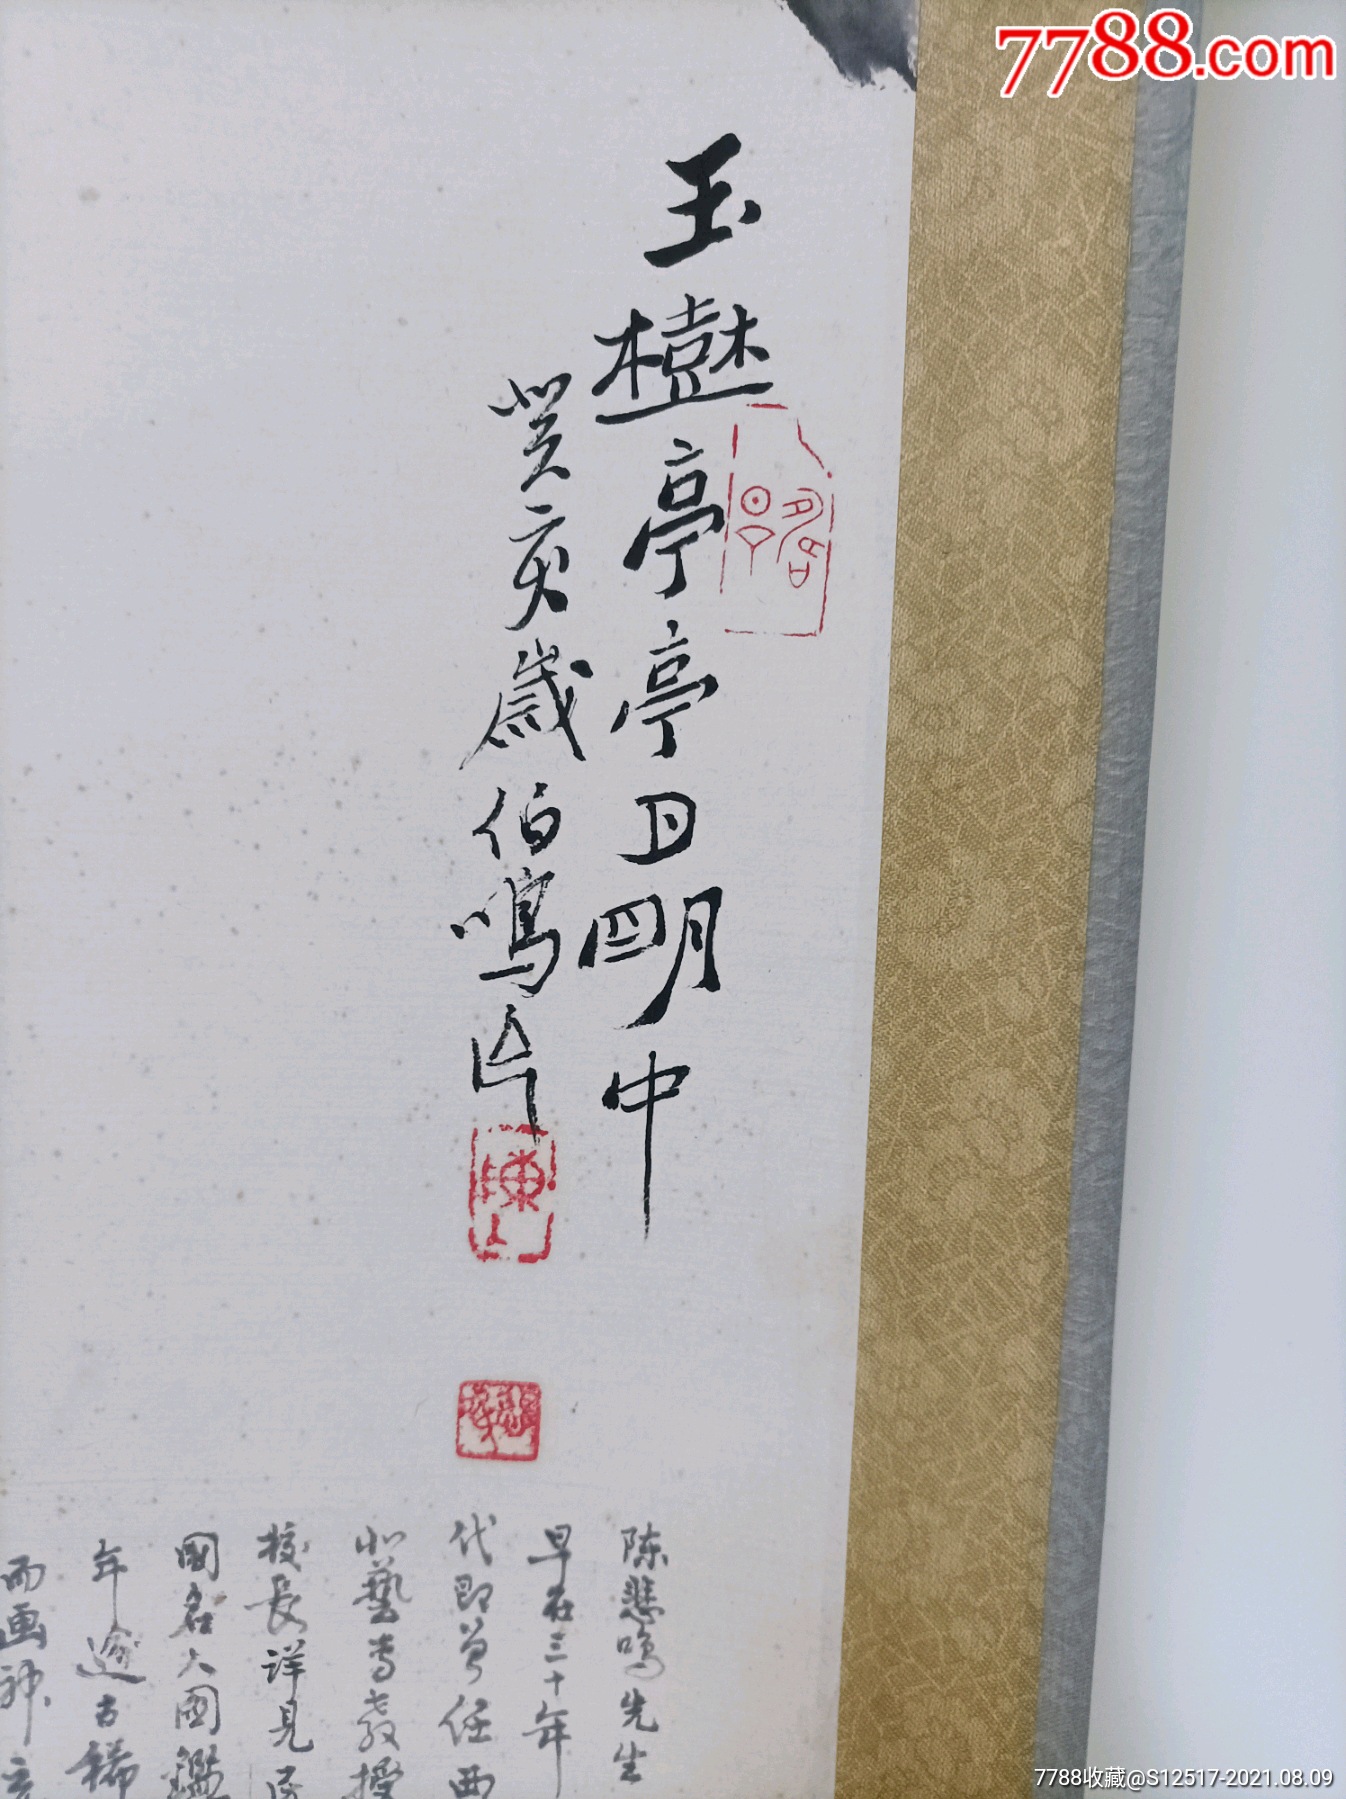 7788.com
玉樹亭亭月明中
癸亥歲伯鳴
陈悲鸣先生
早在三十年
代即曾任西
北藝专教授
校長详見民
國名人國鑑
年逾古稀
而画神
7788收藏@S12517-2021.08.09